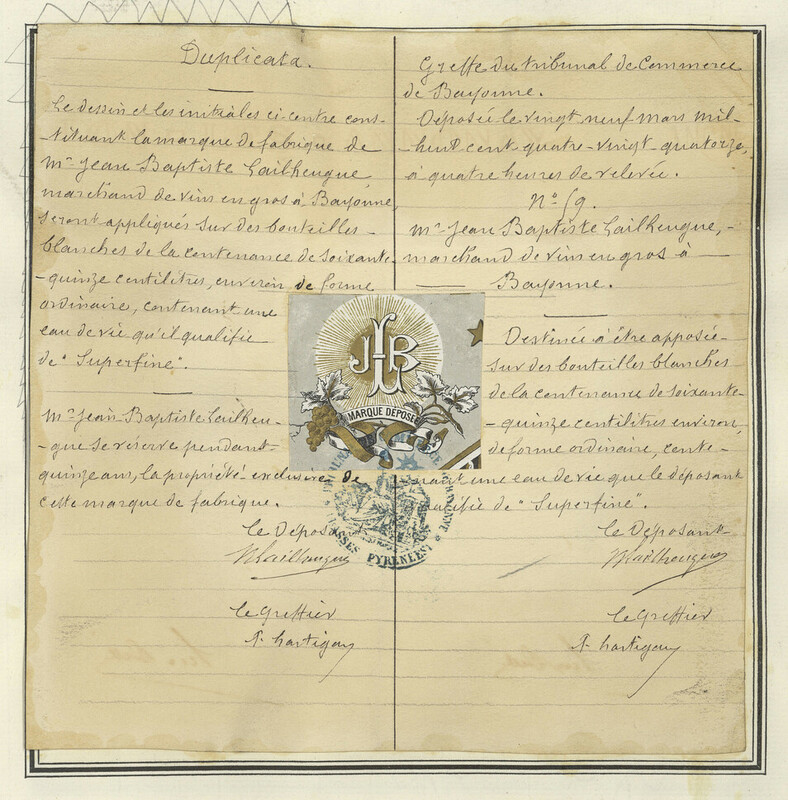 Duplicata.
Le dessin et les initiales ci-contre cons-
-tituant la marque de fabrique de
Mr Jean Baptiste Lailheugue,
marchand de vins en gros à Bayonne,
seront appliqués sur des bouteilles -
blanches de la contenance de soixante-
-quinze centilitres, environ de forme
ordinaire, contenant une
eau de vie qu'il qualifie
de "Superfine".
Mr Jean-Baptiste Lailheu-
-gue se réserve pendant-
quinze ans, la propriété exclusive de
cette marque de fabrique.
Le Déposa
Lailheugue
Le Greffier
P. Hartigoy
Greffe du tribunal de Commerce
de Bayonne.
Déposée le vingt neuf Mars mil-
huit cent quatre-vingt-quatorze,
à quatre heures de relevée.
No 59.
Mr Jean Baptiste Lailheugue, -
marchand de vins en gros à -
Bayonne.
Destinée à être apposée-
sur des bouteilles blanches
de la contenance de soixante-
-quinze centilitres environ,
de forme ordinaire, conte-
-nant une eau de vie que le déposant
qualifie de "Superfine".
Le Déposant
Lailheugue
Le Greffier
P. Hartigoy
JHB
MARQUE DÉPOSÉE
BASSES PYRENÉES